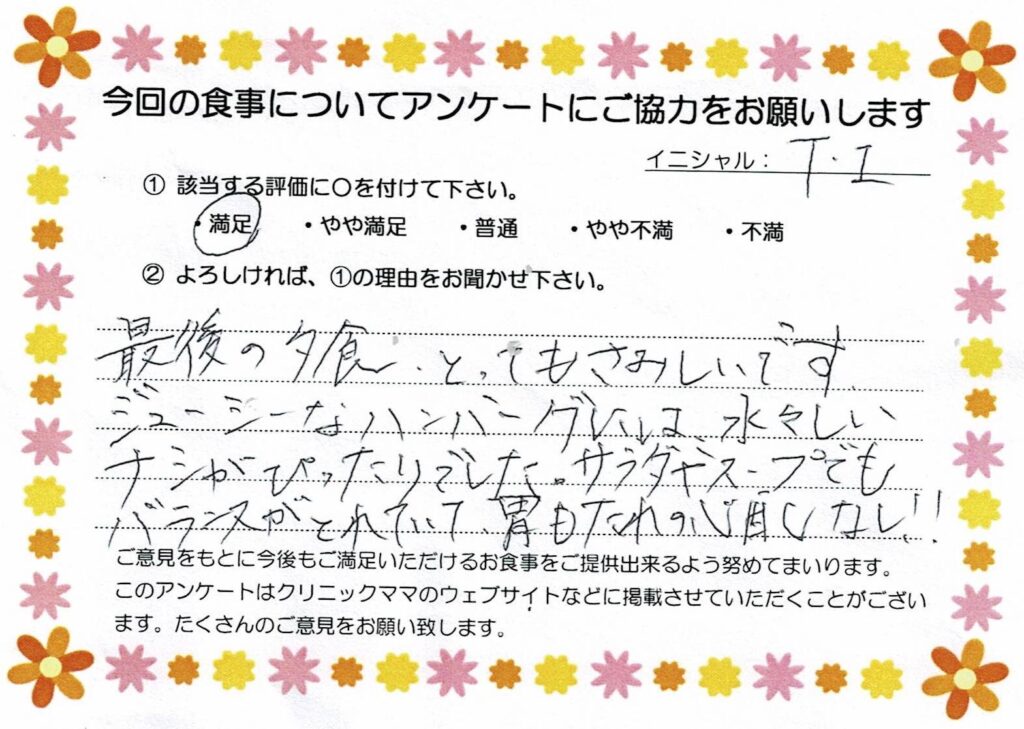 今回の食事についてアンケートにご協力をお願いします
イニシャル： T・I
① 該当する評価に〇を付けて下さい。
・満足 ・やや満足 ・普通 ・やや不満 ・不満
② よろしければ、①の理由をお聞かせ下さい。
最後の夕食、とってもさみしいです。
ジューシーなハンバーグには、水々しい
ナシがぴったりでした。サラダやスープでも
バランスがとれていて、胃もたれの心配なし!!
ご意見をもとに今後もご満足いただけるお食事をご提供出来るよう努めてまいります。
このアンケートはクリニックママのウェブサイトなどに掲載させていただくことがござい
ます。たくさんのご意見をお願い致します。